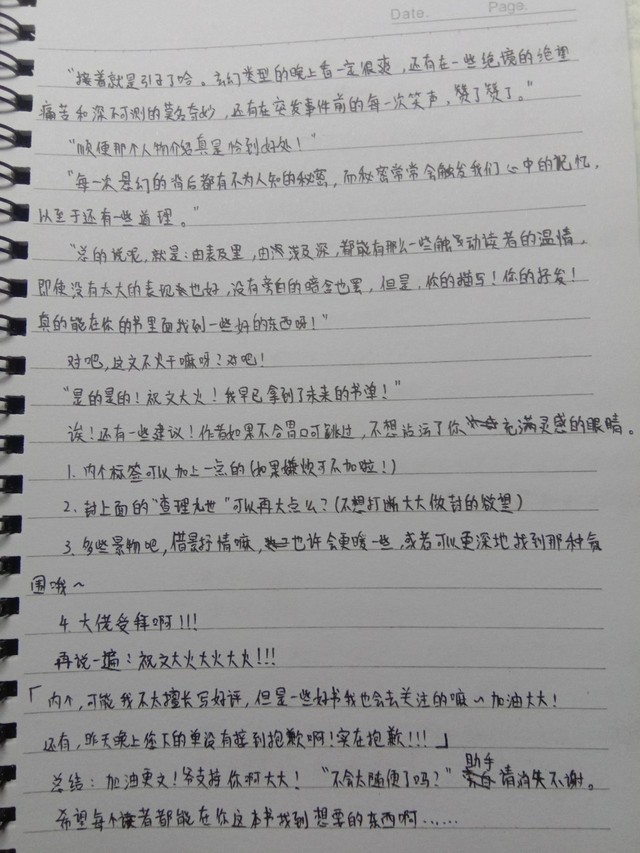 Date. Page.
“接着就是引子了哈。玄幻类型的晚上看一定很爽，还有在一些绝境的绝望
痛苦和深不可测的莫名奇妙，还有在突发事件前的每一次笑声，赞了赞了。”
“顺便那个人物介绍真是恰到好处！”
“每一次悬幻的背后都有不为人知的秘密，而秘密常常会触发我们心中的记忆，
以至于还有一些道理。”
“总的说呢，就是：由表及里，由浅及深，都能有那么一些触动读者的温情，
即使没有太大的表现也好，没有旁白的暗含也罢，但是，你的描写！你的抒发！
真的能在你的书里面找到一些好的东西呀！”
对吧，这文不火干嘛呀？对吧！
“是的是的！祝文大火！我早已拿到了未来的书单！”
诶！还有一些建议！作者如果不合胃口可跳过，不想沾污了你充满灵感的眼睛。
1. 内个标签可以加上一点的（如果嫌烦可不加啦！）
2. 封上面的“查理九世”可以再大点么？（不想打断大大做封的欲望）
3. 多些景物吧，借景抒情嘛，也许会更暖一些，或者可以更深地找到那种氛
围哦～
4. 大佬受拜啊!!!
再说一遍：祝文大火大火大火!!!
「内个，可能我不太擅长写好评，但是一些好书我也会去关注的嘛～加油大大！
还有，昨天晚上您下的单没有接到抱歉啊！实在抱歉!!!」
总结：加油更文！爷支持你啊大大！“不会太随便了吗？”助手请消失不谢。
希望每个读者都能在你这本书找到想要的东西啊……